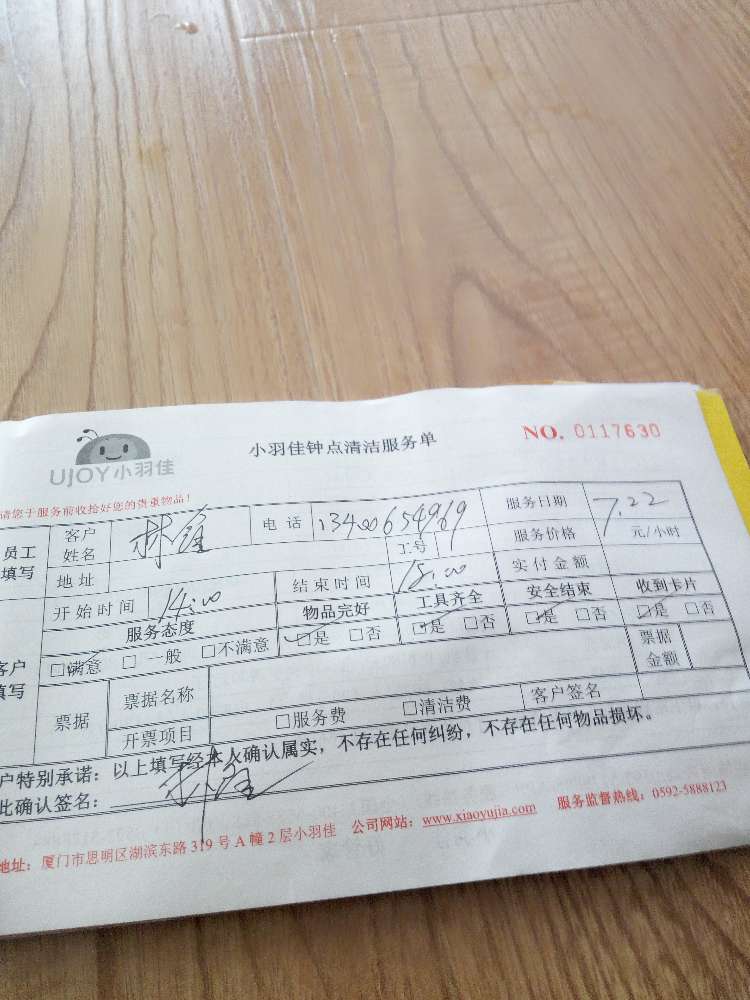 UJOY小羽佳
小羽佳钟点清洁服务单
NO. 0117630
请您于服务前收拾好您的贵重物品!
员工填写 客户姓名 林 电话 13400654969 服务日期 7.22
地址 工号 服务价格 元/小时
开始时间 14:00 结束时间 18:00 实付金额
服务态度 物品完好 工具齐全 安全结束 收到卡片
客户填写 □满意 □一般 □不满意 □是 □否 □是 □否 □是 □否 □是 □否
票据 票据名称 票据金额
开票项目 □服务费 □清洁费 客户签名
户特别承诺:以上填写经本人确认属实,不存在任何纠纷,不存在任何物品损坏。
此确认签名: 林
地址:厦门市思明区湖滨东路319号A幢2层小羽佳 公司网站:www.xiaoyujia.com 服务监督热线:0592-5888123